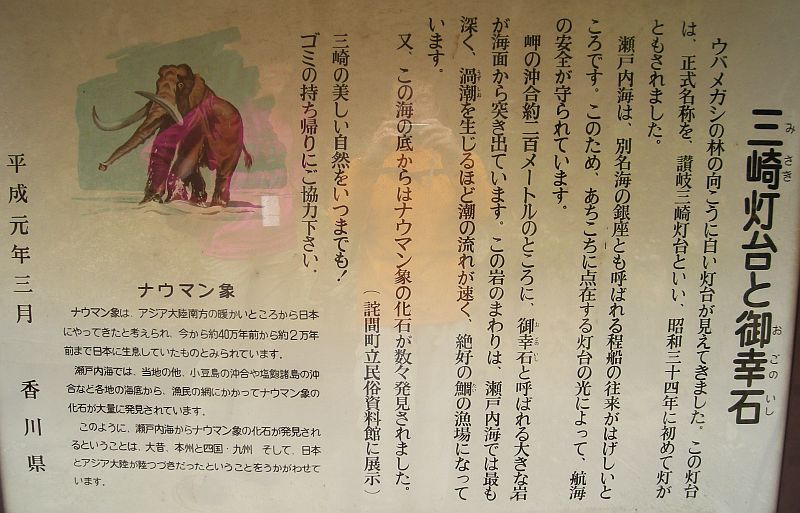 三崎灯台と御幸石
みさき
おごのいし
ウバメガシの林の向こうに白い灯台が見えてきました。この灯台
は、正式名称を、讃岐三崎灯台といい、昭和三十四年に初めて灯が
ともされました。
瀬戸内海は、別名海の銀座とも呼ばれる程船の往来がはげしいと
ころです。このため、あちこちに点在する灯台の光によって、航海
の安全が守られています。
岬の沖合約二百メートルのところに、御幸石と呼ばれる大きな岩
が海面から突き出ています。この岩のまわりは、瀬戸内海では最も
深く、渦潮を生じるほど潮の流れが速く、絶好の鯛の漁場になって
うずしお
たい
います。
又、この海の底からはナウマン象の化石が数々発見されました。
（詫間町立民俗資料館に展示）
三崎の美しい自然をいつまでも！
ゴミの持ち帰りにご協力下さい。
ナウマン象
ナウマン象は、アジア大陸南方の暖かいところから日本
にやってきたと考えられ、今から約40万年前から約2万年
前まで日本に生息していたものとみられています。
瀬戸内海では、当地の他、小豆島の沖合や塩飽諸島の沖
合など各地の海底から、漁民の網にかかってナウマン象の
化石が大量に発見されています。
このように、瀬戸内海からナウマン象の化石が発見され
るということは、大昔、本州と四国・九州 そして、日本
とアジア大陸が陸つづきだったということをうかがわせて
います。
平成元年三月 香川県